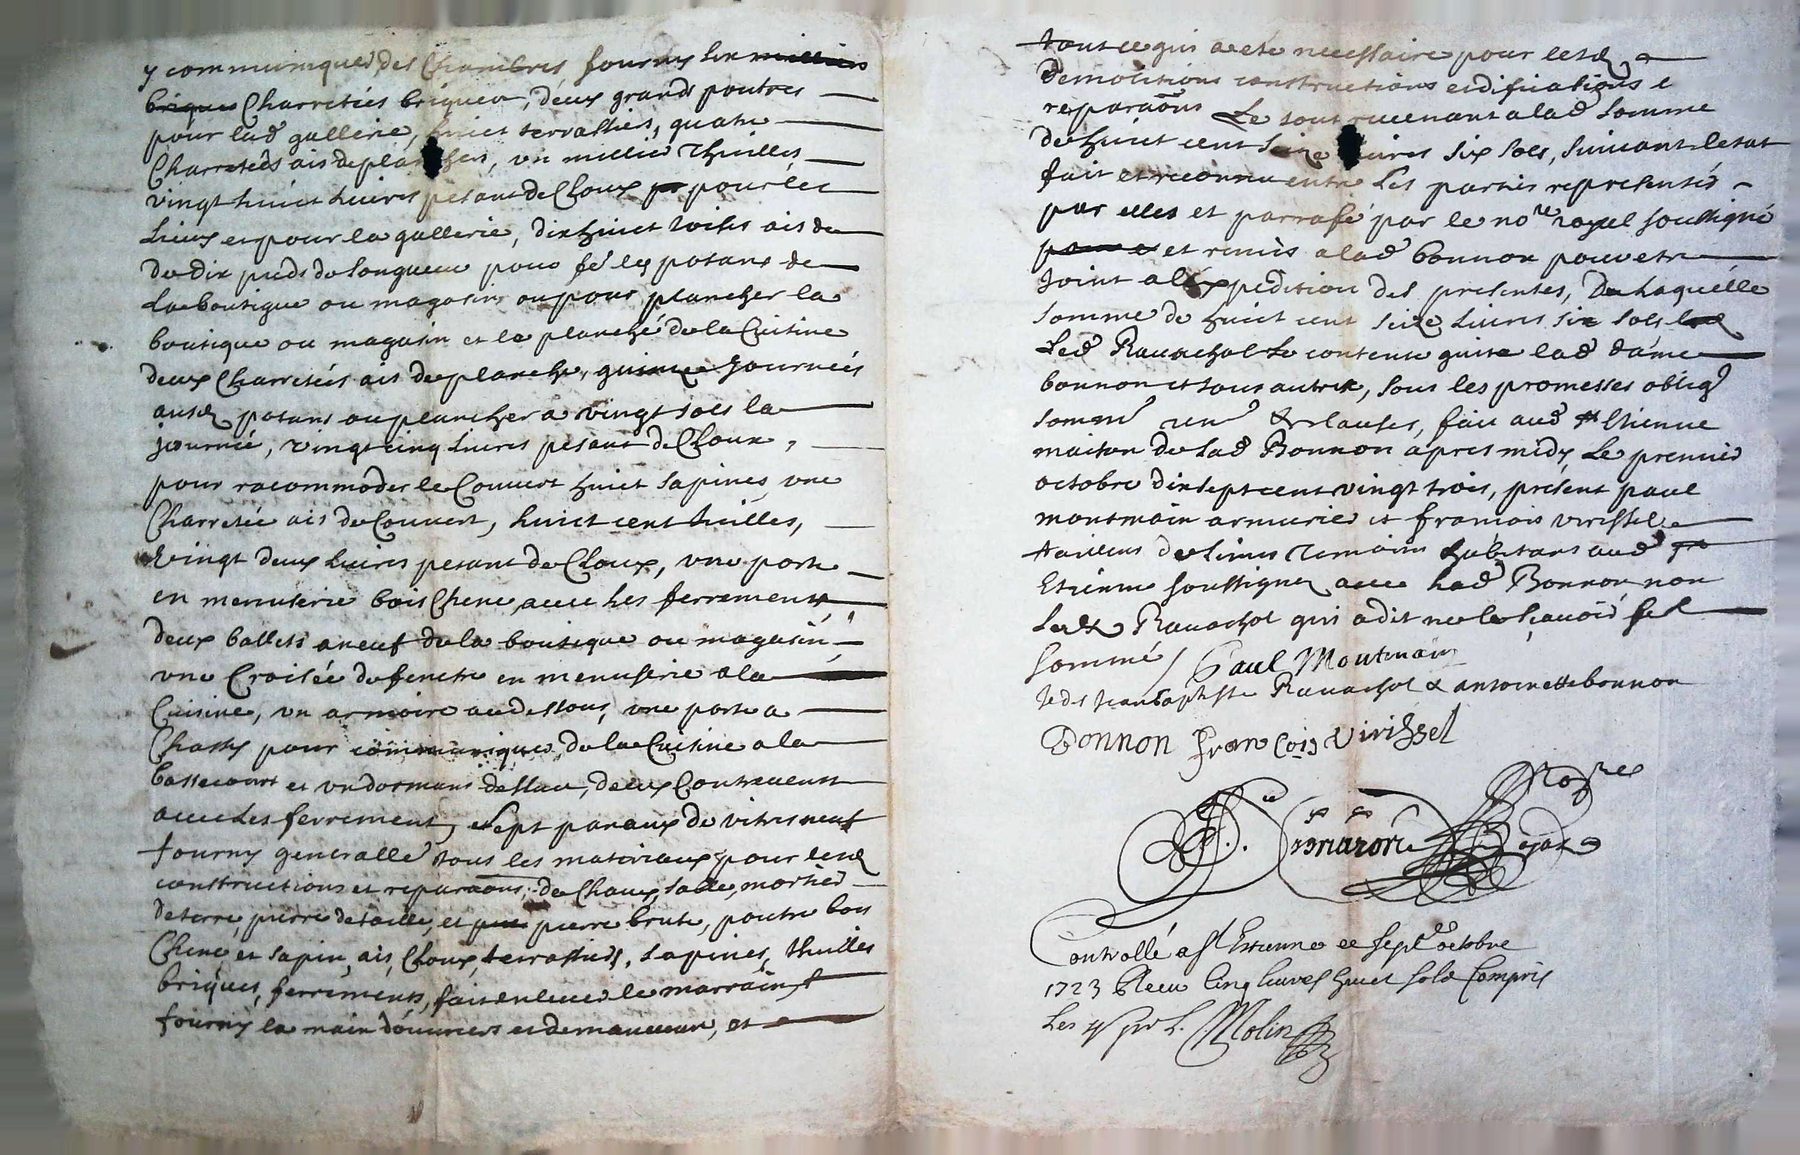 y communiquer des Chambres, fourny six milliers
briques Charretées briques, deux grands poutres
pour lad gallerie, huict terrassiers, quatre
Charretées ais de planchers, un millier thuilles
vingt huict Livres pesant de Cloux pr pour les
Lieux et pour la gallerie, dix huict toises ais de
de dix pieds de longueur pour les postans de
La boutique ou magasin ou pour plancher la
boutique ou magasin et le planché de la Cuisine
deux Charretées ais de planche, quinze Journées
ausd postans ou plancher a vingt sols la
journée, vingt cinq Livres pesant de Cloux,
pour racommoder le Couvert huict sapines une
Charretée ais de Couvert, huict cent thuilles,
vingt deux Livres pesant de Cloux, une porte
en menuserie bois Chene, avec les ferrements,
deux ballets a neuf de la boutique ou magasin,
une Croisée de fenetre en menuserie a la
Cuisine, un armoire au dessous, une porte a
Chassis pour communiquer de la Cuisine a la
bassecourt et un dormant dessus, deux Contrevents
avec Les ferrements, Sept panaux de vitres neuf
fourny generalle tous les materiaux pour lesd
constructions et reparaõns, de Chaux, sable, mortier
de terre, pierre de taille, et pierre brute, poutre bois
Chene et sapin, ais, Cloux, terrassiers, sapines, thuilles
briques, ferrements, fait enlever le marrain, et
fourny la main d'ouvriers et de manuvre, et
tout ce qui a esté necessaire pour lesd
demolitions constructions edifications et
reparaõns Le tout revenant a lad somme
de huict cent seize Livres six sols, suivant letat
fait et reconnu entre Les parties representé
par elles et parrafé par le nore royal soussigné
et remis a lad bonnon pour etre
Joint a lexpedition des presentes, De Laquelle
somme de huict cent seize Livres six sols
Led Ravachol Se contente quitte lad dame
bonnon et tous autres, sous les promesses oblig
somm ren & clauses, fait aud st Etienne
maison de lad Bonnon apres midy, Le premier
octobre dix sept cent vingt trois, present paul
montmain armurier et francois virissel
tailleur de limes temoins habitans aud st
Etienne soussignez avec lad Bonnon, non
Led Ravachol qui a dit ne le scavoir
sommé / Paul Moutmain
Jean baptiste Ravachol & antoinette bonnon
Bonnon francois Virissel
Controllé a St Estienne ce octobre
1723 Receu Cinq Livres huict sols Compris
Les 4 s pr L. Molin